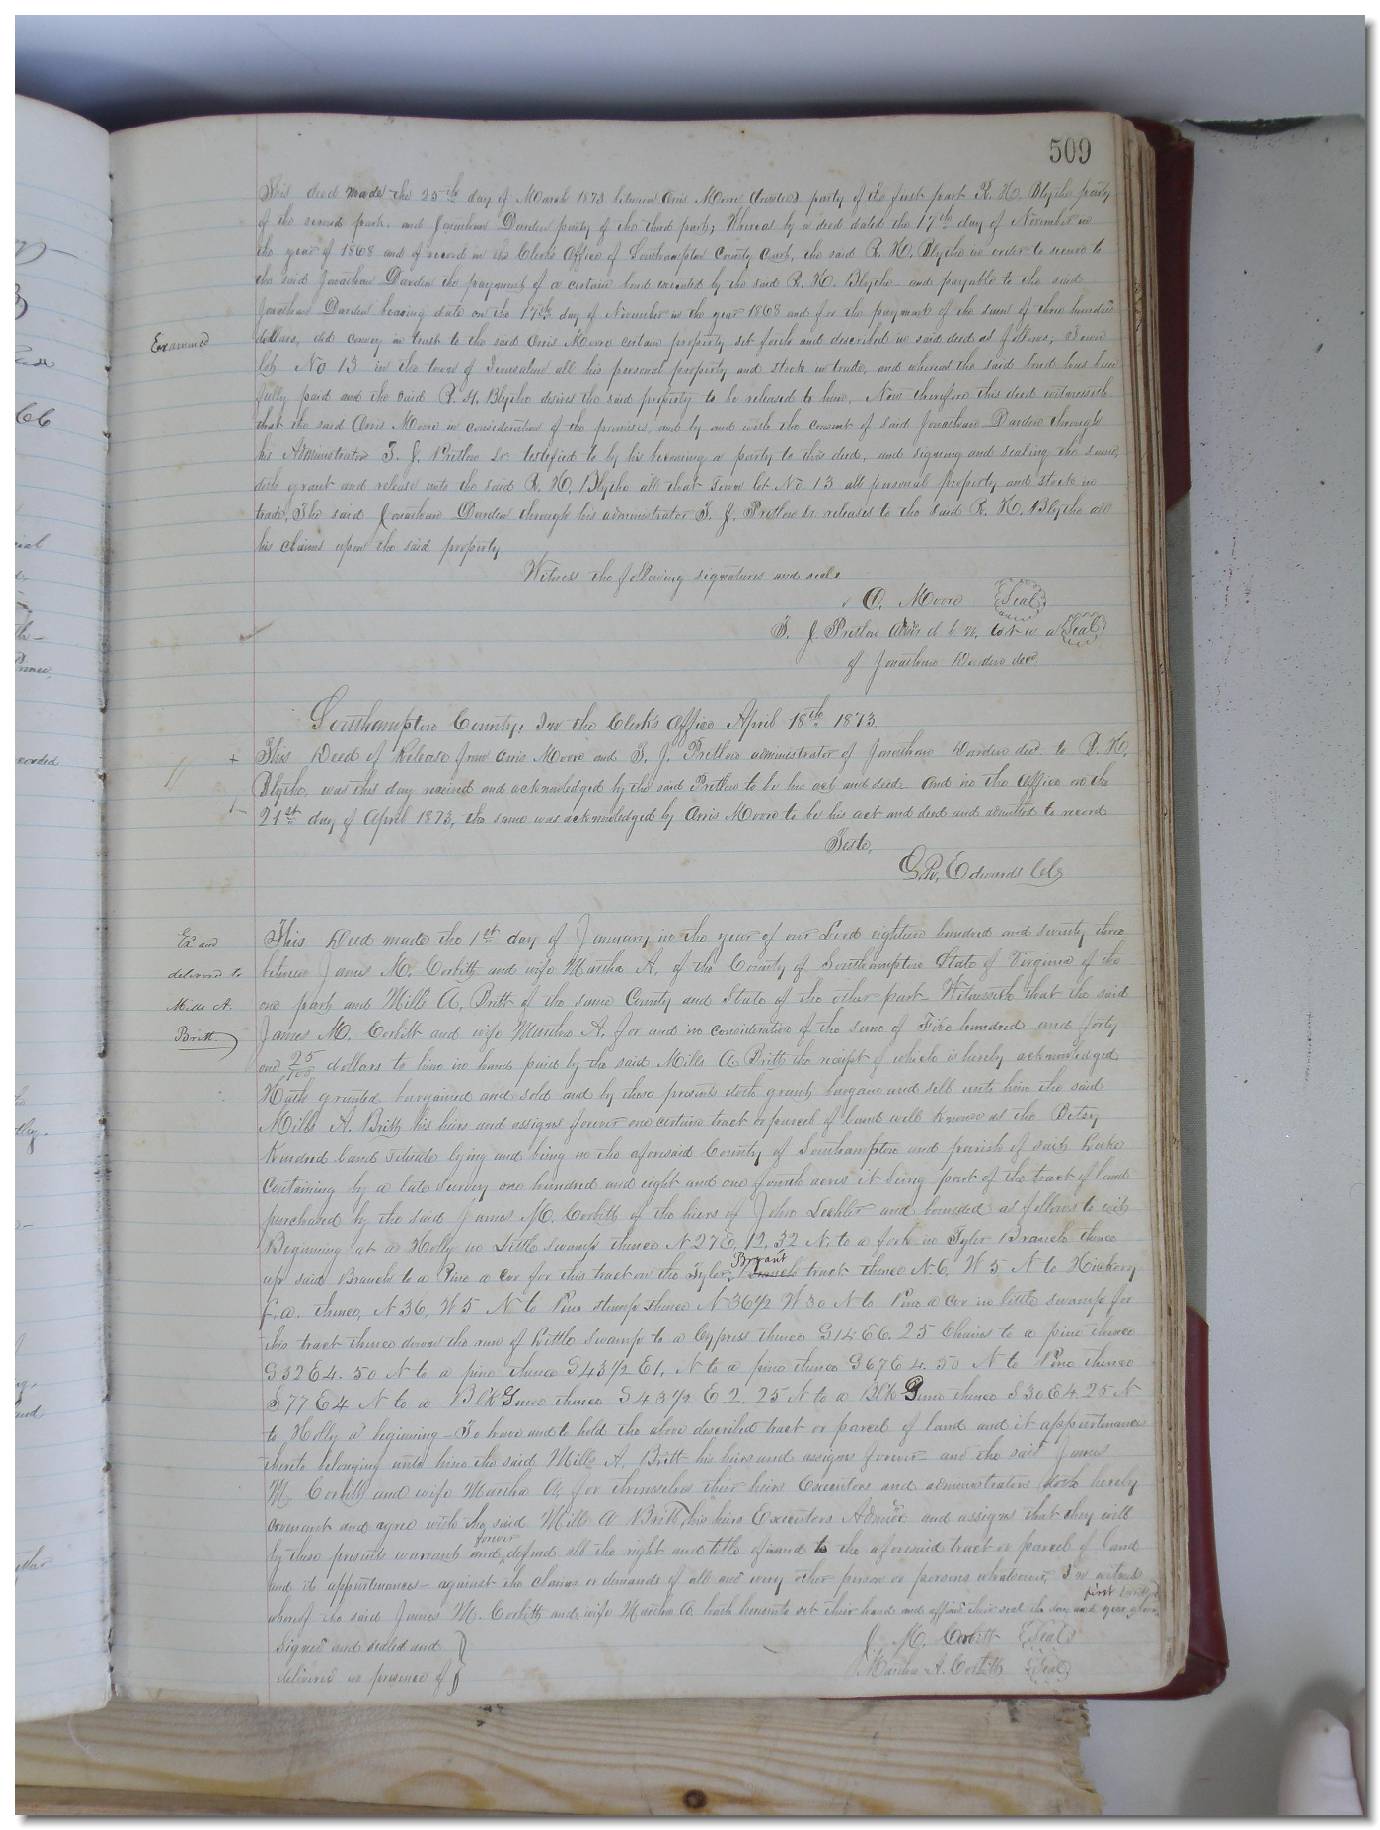 509
This deed made the 25th day of March 1873 between Orris Moore (trustee) party of the first part R. H. Blythe party
of the second part, and Jonathan Darden party of the third part; Whereas by a deed dated the 17th day of November in
the year of 1868 and of record in the Clerks Office of Southampton County Court, the said R. H. Blythe in order to secure to
the said Jonathan Darden the prayment of a certain bond executed by the said R. H. Blythe and payable to the said
Jonathan Darden bearing date on the 17th day of November in the year 1868 and for the payment of the sum of three hundred
Examined
dollars, did convey in trust to the said Orris Moore certain property set forth and described in said deed as follows; Town
lot No 13 in the town of Jerusalem all his personal property and stock in trade, and whereas the said bond has been
fully paid and the said R. H. Blythe desires the said property to be released to him, Now therefore this deed witnesseth
that the said Orris Moore in consideration of the premises, and by and with the consent of said Jonathan Darden through
his Administrator T. J. Pretlow Sr testified to by his becoming a party to this deed, and signing and sealing the same,
doth grant and release unto the said R. H. Blythe all that Town lot No 13 all personal property and stock in
trade, The said Jonathan Darden through his administrator T. J. Pretlow Sr releases to the said R. H. Blythe all
his claims upon the said property
Witness the following signatures and seals
O. Moore Seal
T. J. Pretlow Admr d b n, Seal
of Jonathan Darden decd
Southampton County: In the Clerk's Office April 18th 1873.
This Deed of Release from Orris Moore and T. J. Pretlow administrator of Jonathan Darden decd to R. H.
Blythe, was this day received and acknowledged by the said Pretlow to be his act and deed. And in the Office on the
21st day of April 1873, the same was acknowledged by Orris Moore to be his act and deed and admitted to record
Teste,
Edwards Clk
Exd and
delivered to
Mills A.
Britt
This Deed made the 1st day of January in the year of our Lord eighteen hundred and seventy three
between James M. Corbitt and wife Martha A. of the County of Southampton State of Virginia of the
one part and Mills A. Britt of the same County and State of the other part - Witnesseth that the said
James M. Corbitt and wife Martha A. for and in consideration of the sum of Five hundred and forty
one 25/100 dollars to him in hand paid by the said Mills A. Britt the receipt of which is hereby acknowledged
Hath granted bargained and sold and by these presents doth grant, bargain and sell unto him the said
Mills A. Britt, his heirs and assigns forever one certain tract or parcel of land well known as the Betsy
Kindred land situate lying and being in the aforesaid County of Southampton and parish of Saint Luke
Containing by a late survey one hundred and eight and one fourth acres it being part of the tract of land
purchased by the said James M. Corbitt of the heirs of John and bounded as follows to wit;
Beginning at a Holly in Little Swamp thence N 27 E, 12, 32 N, to a fork in Tyler Branch thence
up said Branch to a Pine a cor for this tract on the Tyler, Bryant tract thence N 6, W 5 N to Hickory
thence, N 36, W 5 N to Pine stump thence N 36 1/2 W 30 N to Pine a cor in little swamp for
this tract thence down the run of Little Swamp to a Cypress thence S 14 E 6. 25 Chains to a pine thence
S 32 E 4. 50 N to a pine thence S 43 1/2 E 1, N to a pine thence S 67 E 4. 50 N to Pine thence
S 77 E 4 N to a Blk Gum thence S 43 1/2 E 2. 25 N to a Blk Gum thence S 30 E 4. 25 N
to Holly a beginning - To have and to hold the above described tract or parcel of land and it appurtenances
thereto belonging unto him the said Mills A. Britt his heirs and assigns forever and the said James
M. Corbitt and wife Martha A, for themselves their heirs Executors and administrators doth hereby
covenant and agree with the said Mills A Britt, his heirs Executors Admrs and assigns that they will
by these presents warrant and forever defend all the right and title of and to the aforesaid tract or parcel of land
and its appurtenances - against the claims or demands of all and every other person or persons whatsoever, In witness
whereof the said James M. Corbitt and wife Martha A. hath hereunto set their hand and affixed their seal the day and year first above
Signed and sealed and
delivered in presence of
J. M. Corbitt Seal
Martha A. Corbitt Seal